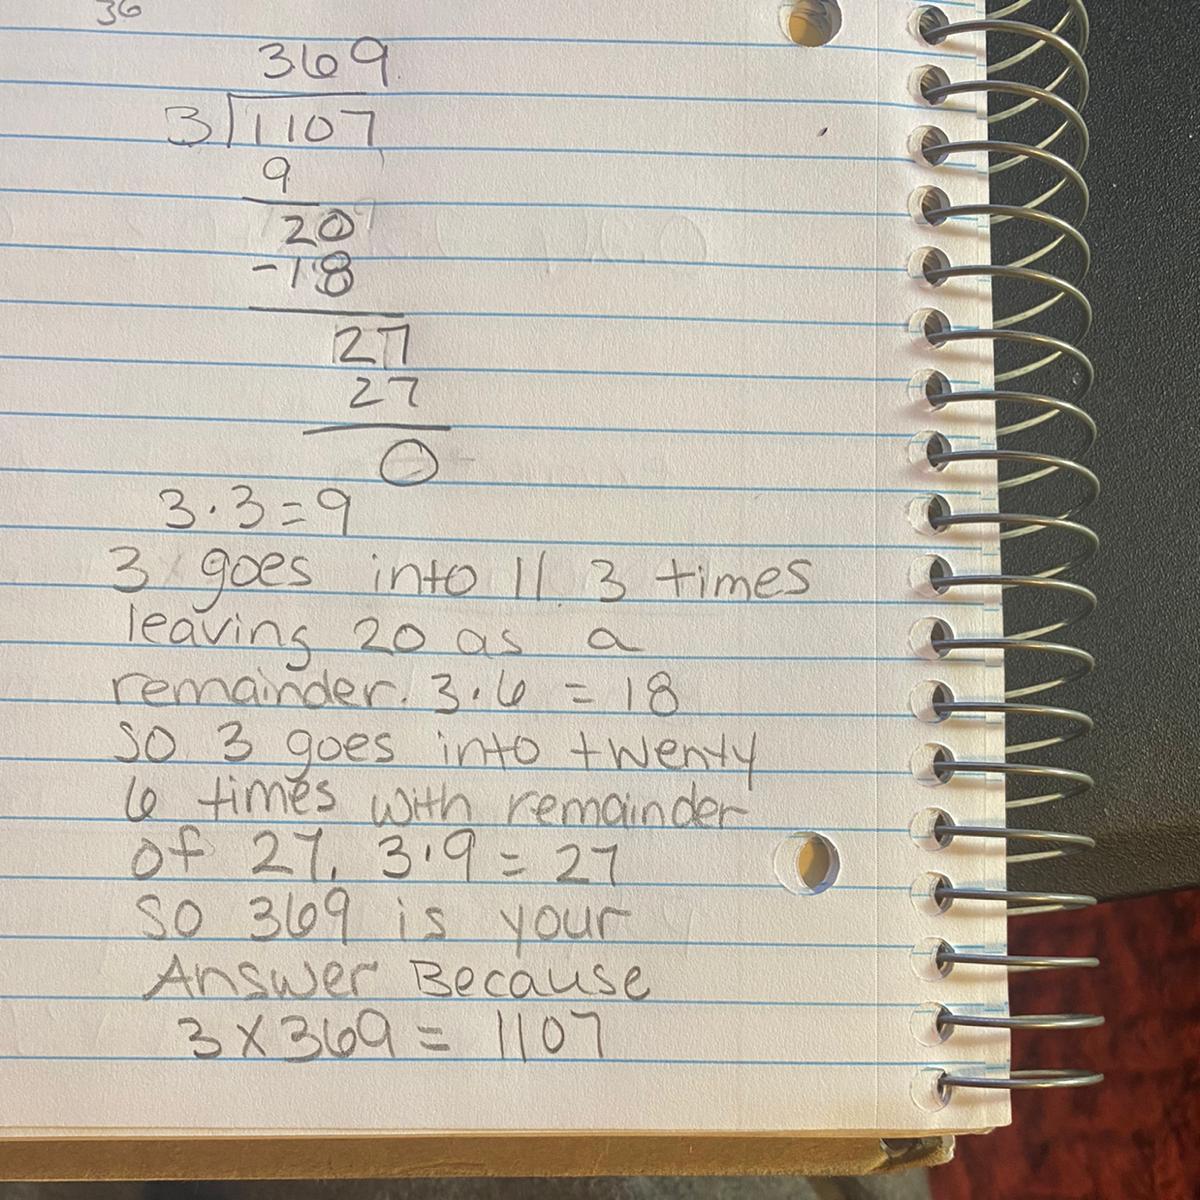 36
369
3 1107
9
20
-18
27
27
0
3·3=9
3 goes into 11 3 times
leaving 20 as a
remainder. 3·6 = 18
so 3 goes into twenty
6 times with remainder
of 27. 3·9 = 27
so 369 is your
Answer Because
3 x 369 = 1107